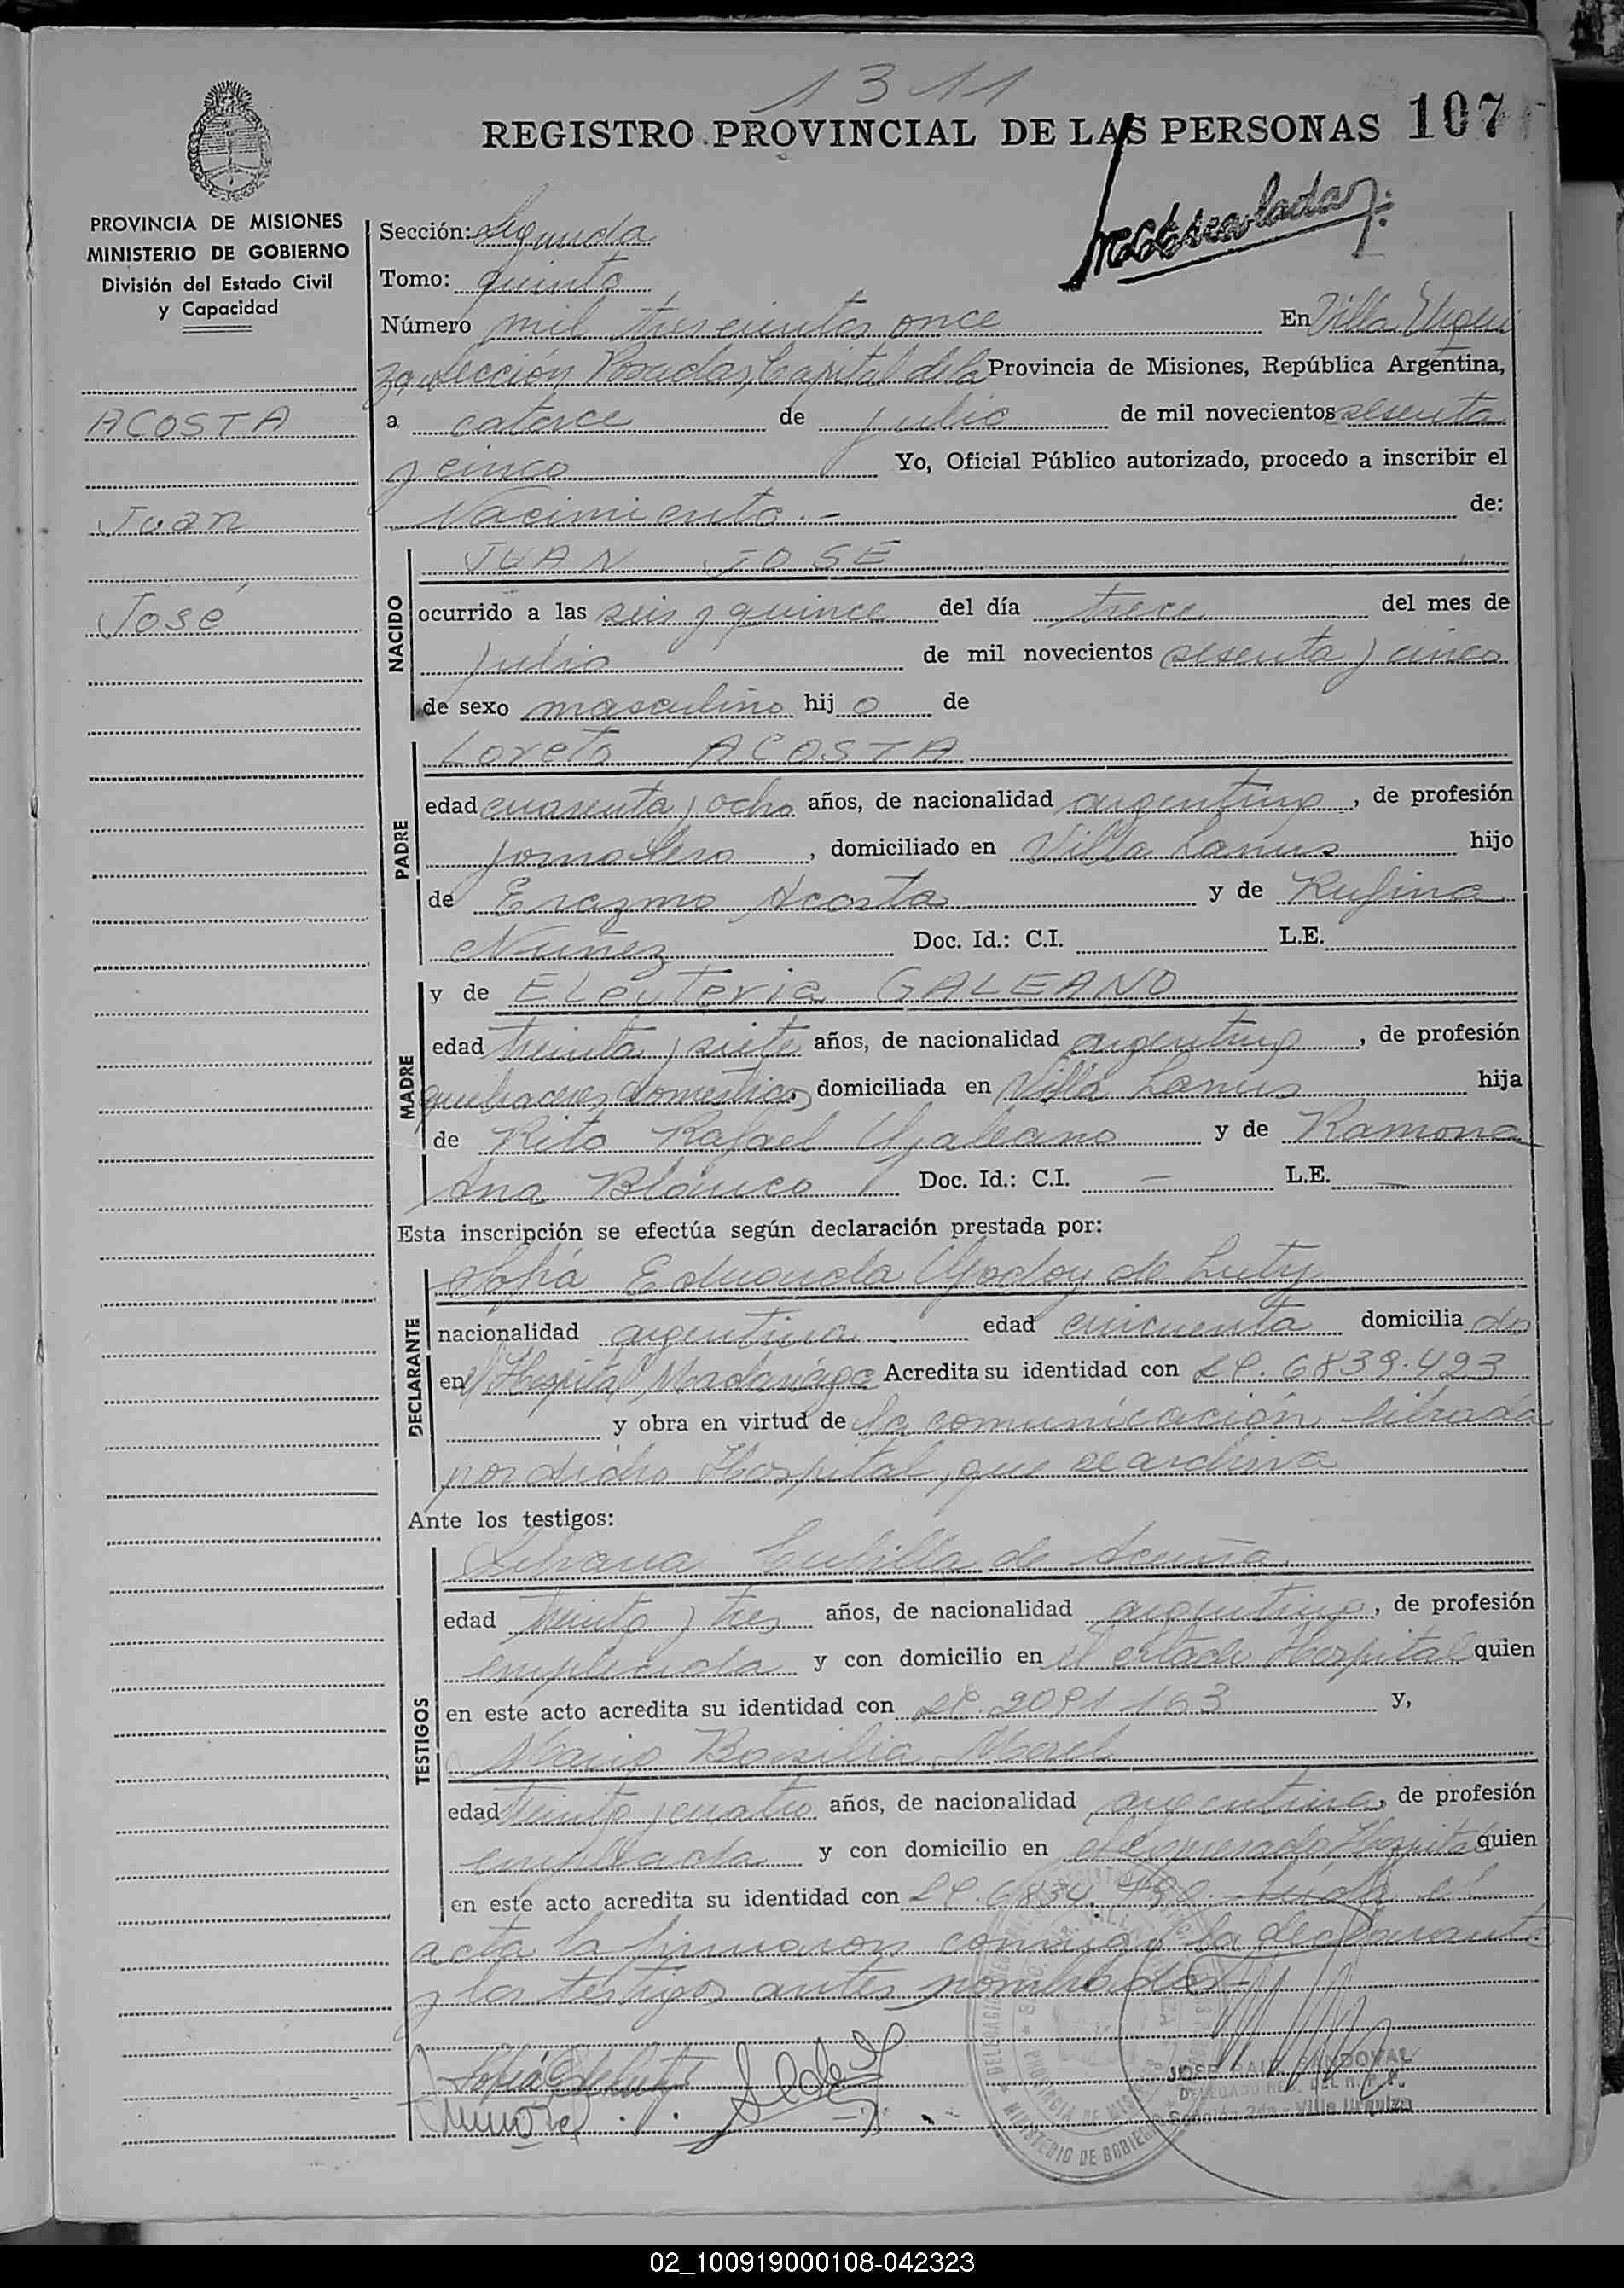 1311
REGISTRO PROVINCIAL DE LAS PERSONAS 107
PROVINCIA DE MISIONES
MINISTERIO DE GOBIERNO
División del Estado Civil
y Capacidad
ACOSTA
Juan
José
Matriculado
Sección: Segunda
Tomo: quinto
Número mil trescientos once En Villa Urqui
za, Sección Posadas, Capital de la Provincia de Misiones, República Argentina,
a catorce de julio de mil novecientos sesenta
y cinco Yo, Oficial Público autorizado, procedo a inscribir el
Nacimiento.- de:
NACIDO
JUAN JOSE
ocurrido a las seis y quince del día trece del mes de
julio de mil novecientos sesenta y cinco
de sexo masculino hij o de
PADRE
Loreto ACOSTA
edad cuarenta y ocho años, de nacionalidad argentino, de profesión
jornalero, domiciliado en Villa Lanus hijo
de Erazmo Acosta y de Rufina
Nuñez Doc. Id.: C.I. L.E.
MADRE
y de Eleuteria GALEANO
edad treinta y siete años, de nacionalidad argentina, de profesión
quehaceres domésticos domiciliada en Villa Lanus hija
de Rito Rafael Galeano y de Ramona
Ana Blanco Doc. Id.: C.I. — L.E. —
Esta inscripción se efectúa según declaración prestada por:
DECLARANTE
Sofia Eduarda Godoy de Luty
nacionalidad argentina edad cincuenta domicilia da
en el Hospital Madariaga Acredita su identidad con LC. 6839.493
y obra en virtud de la comunicación librada
por dicho Hospital, que se archiva
Ante los testigos:
TESTIGOS
Cubilla de Acuña
edad treinta y tres años, de nacionalidad argentina, de profesión
empleada y con domicilio en el citado Hospital quien
en este acto acredita su identidad con LC. 2091163 y,
Maria Basilia Morel
edad treinta y cuatro años, de nacionalidad argentina, de profesión
empleada y con domicilio en el expresado Hospital quien
en este acto acredita su identidad con LC. 6834. Leida el
acta la firmaron conmigo la declarante
y los testigos antes nombrados.-
Sofia E de Luty
MMorel
JOSE RAUL SANDOVAL
DELEGADO REG. DEL R. P. P.
Sección 2da - Villa Urquiza
MINISTERIO DE GOBIERNO
PROVINCIA DE MISIONES
02_100919000108-042323